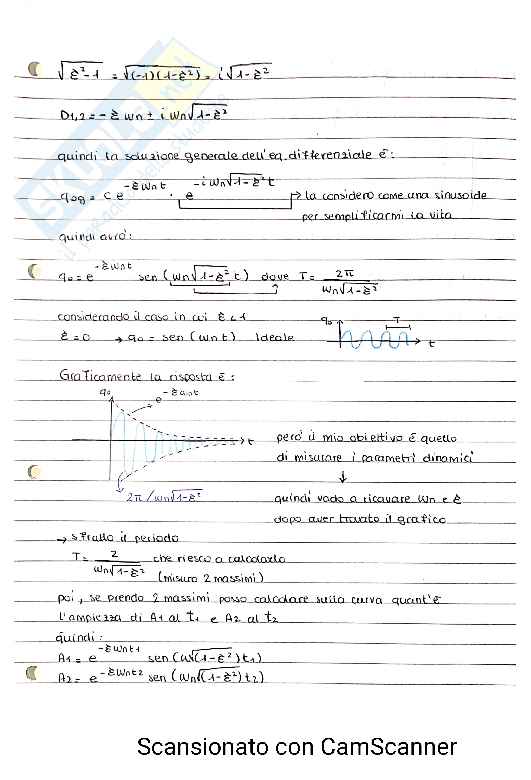 √(ξ²-1) = √((-1)(1-ξ²)) = i√(1-ξ²)
D1,2 = -ξ ωn ± i ωn√(1-ξ²)
quindi la soluzione generale dell'eq. differenziale è:
q0g = C e^(-ξωnt) · e^(-iωn√(1-ξ²)t) → la considero come una sinusoide
per semplificarmi la vita
quindi avrò:
q0 = e^(-ξωnt) sen(ωn√(1-ξ²) t) dove T = 2π / ωn√(1-ξ²)
considerando il caso in cui ξ<1
ξ=0 → q0 = sen(ωnt) Ideale
q0 T t
Graficamente la risposta è:
q0 e^(-ξωnt) t
2π/ωn√(1-ξ²)
però il mio obiettivo è quello
di misurare i parametri dinamici
↓
quindi vado a ricavare ωn e ξ
dopo aver trovato il grafico
→ sfrutto il periodo
T = 2 / ωn√(1-ξ²) che riesco a calcolarlo
(misuro 2 massimi)
poi, se prendo 2 massimi posso calcolare sulla curva quant'è
l'ampiezza di A1 al t1 e A2 al t2
quindi:
A1 = e^(-ξωnt1) sen(ω√(1-ξ²)t1)
A2 = e^(-ξωnt2) sen(ωn√(1-ξ²)t2)
Scansionato con CamScanner